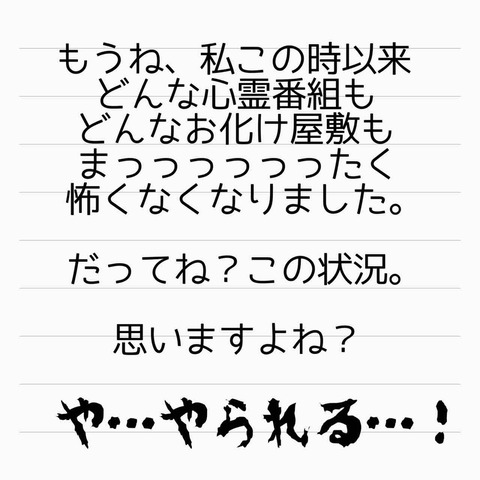 もうね、私この時以来
どんな心霊番組も
どんなお化け屋敷も
まっっっっっったく
怖くなくなりました。
だってね？この状況。
思いますよね？
や…やられる…！